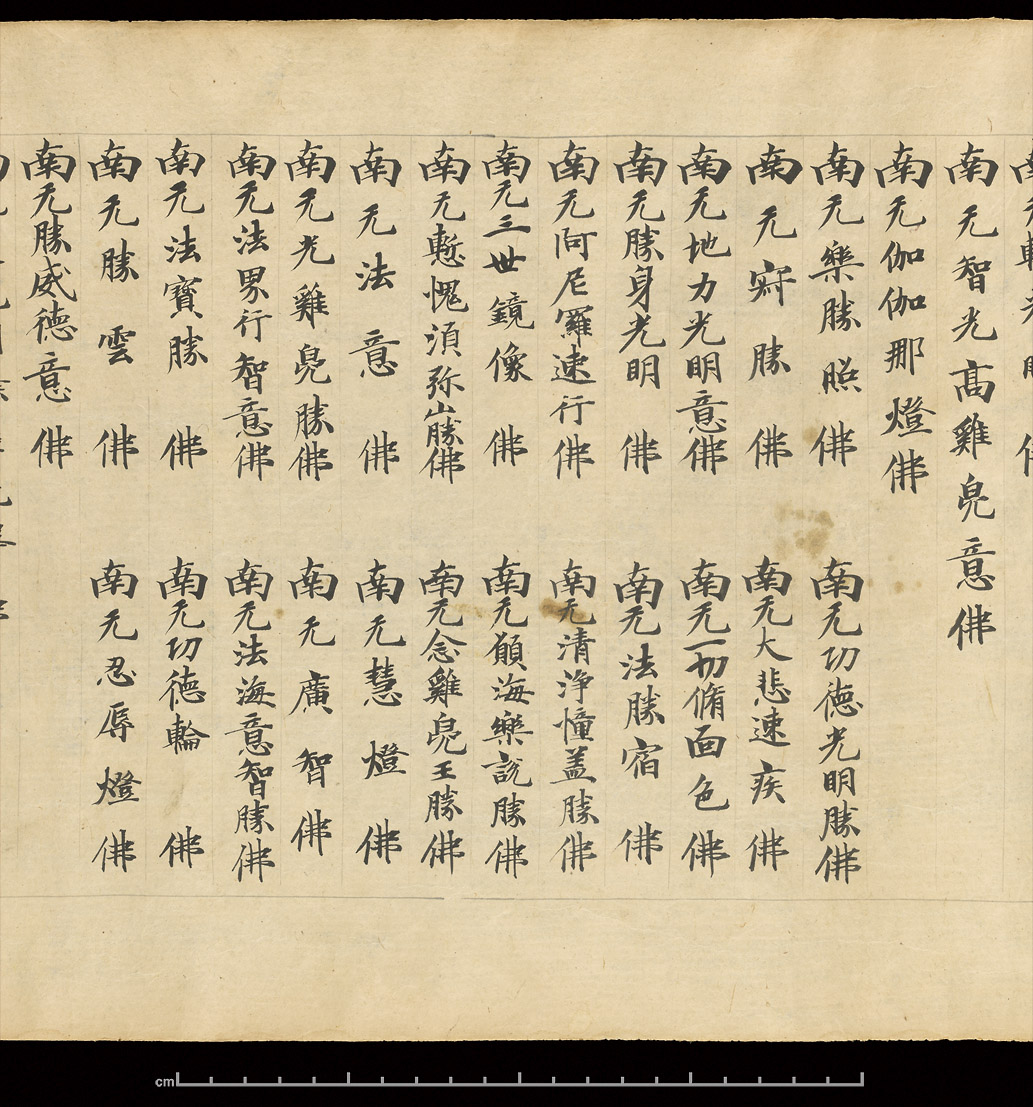 南无智光高雞兠意佛
南无伽伽那燈佛
南无樂勝照佛 南无功德光明勝佛
南无寂勝佛 南无大悲速疾佛
南无地力光明意佛 南无一切脩面色佛
南无勝身光明佛 南无法勝宿佛
南无阿尼羅速行佛 南无清淨憧盖勝佛
南无三世鏡像佛 南无願海樂說勝佛
南无慙愧湏弥山勝佛 南无念雞兠王勝佛
南无法意佛 南无慧燈佛
南无光雞兠勝佛 南无廣智佛
南无法界行智意佛 南无法海意智勝佛
南无法寶勝佛 南无功德輪佛
南无勝雲佛 南无忍辱燈佛
南无勝威德意佛